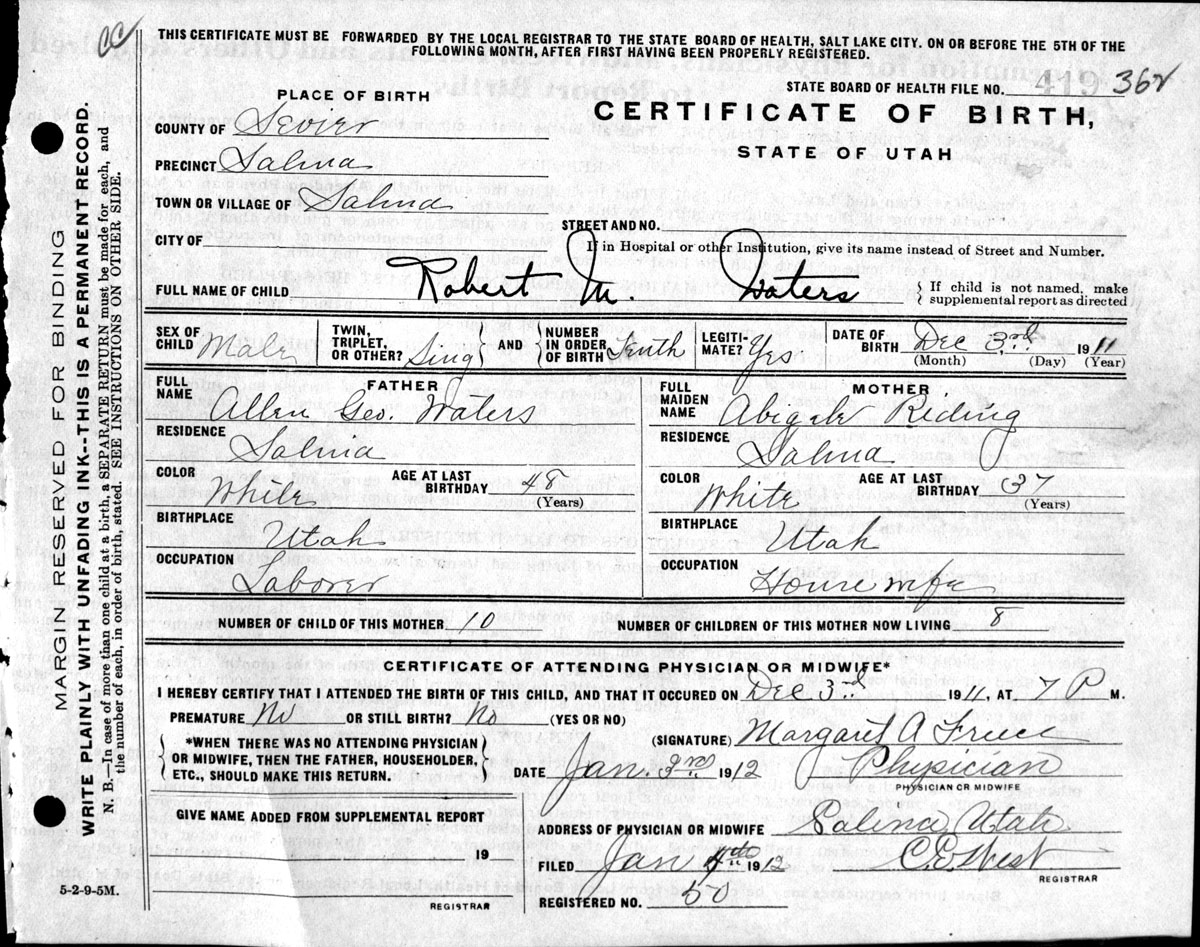 CC
THIS CERTIFICATE MUST BE FORWARDED BY THE LOCAL REGISTRAR TO THE STATE BOARD OF HEALTH, SALT LAKE CITY. ON OR BEFORE THE 5TH OF THE
FOLLOWING MONTH, AFTER FIRST HAVING BEEN PROPERLY REGISTERED.
STATE BOARD OF HEALTH FILE NO. 362
PLACE OF BIRTH
CERTIFICATE OF BIRTH,
STATE OF UTAH
COUNTY OF Sevier
PRECINCT Salina
TOWN OR VILLAGE OF Salina
STREET AND NO.
CITY OF
If in Hospital or other Institution, give its name instead of Street and Number.
FULL NAME OF CHILD Robert M. Waters { If child is not named, make
supplemental report as directed
SEX OF CHILD Male
TWIN, TRIPLET, OR OTHER? Sing } AND { NUMBER IN ORDER OF BIRTH Tenth
LEGITI-MATE? Yes
DATE OF BIRTH Dec 3rd 1911
(Month) (Day) (Year)
FATHER
FULL NAME Allen Geo. Waters
RESIDENCE Salina
COLOR White AGE AT LAST BIRTHDAY 48 (Years)
BIRTHPLACE Utah
OCCUPATION Laborer
MOTHER
FULL MAIDEN NAME Abigale Riding
RESIDENCE Salina
COLOR White AGE AT LAST BIRTHDAY 37 (Years)
BIRTHPLACE Utah
OCCUPATION House wife
NUMBER OF CHILD OF THIS MOTHER 10 NUMBER OF CHILDREN OF THIS MOTHER NOW LIVING 8
CERTIFICATE OF ATTENDING PHYSICIAN OR MIDWIFE*
I HEREBY CERTIFY THAT I ATTENDED THE BIRTH OF THIS CHILD, AND THAT IT OCCURED ON Dec 3rd 1911, AT 7 P M.
PREMATURE No OR STILL BIRTH? No (YES OR NO)
(SIGNATURE) Margaret A
*WHEN THERE WAS NO ATTENDING PHYSICIAN
OR MIDWIFE, THEN THE FATHER, HOUSEHOLDER,
ETC., SHOULD MAKE THIS RETURN.
DATE Jan. 1912 Physician
PHYSICIAN OR MIDWIFE
GIVE NAME ADDED FROM SUPPLEMENTAL REPORT
19
REGISTRAR
ADDRESS OF PHYSICIAN OR MIDWIFE Salina, Utah
FILED Jan 4th 1912 C.E. West
REGISTRAR
REGISTERED NO. 50
5-2-9-5M.
MARGIN RESERVED FOR BINDING
WRITE PLAINLY WITH UNFADING INK--THIS IS A PERMANENT RECORD.
N. B.—In case of more than one child at a birth, a SEPARATE RETURN must be made for each, and
the number of each, in order of birth, stated. SEE INSTRUCTIONS ON OTHER SIDE.